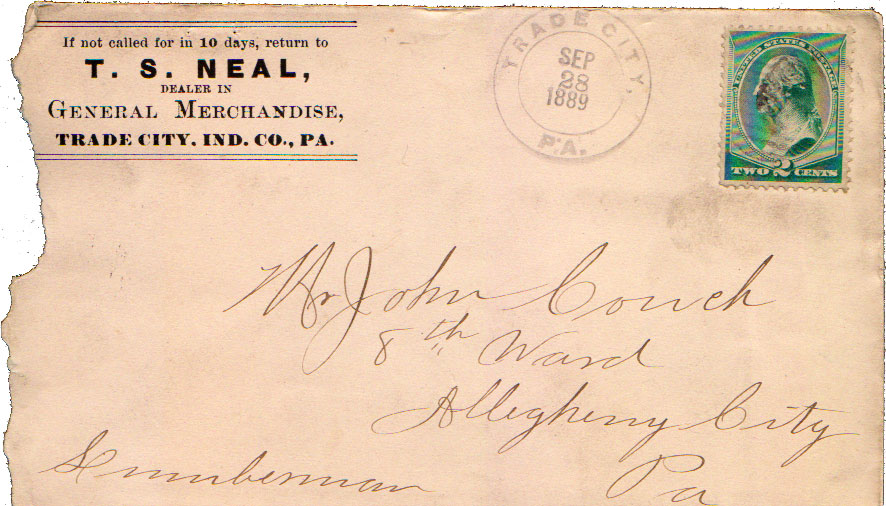 If not called for in 10 days, return to
T. S. NEAL,
DEALER IN
GENERAL MERCHANDISE,
TRADE CITY. IND. CO., PA.
TRADE CITY,
SEP
28
1889
PA.
UNITED STATES POSTAGE
TWO 2 CENTS
Mr John Couch
8th Ward
Allegheny City
Lumberman Pa